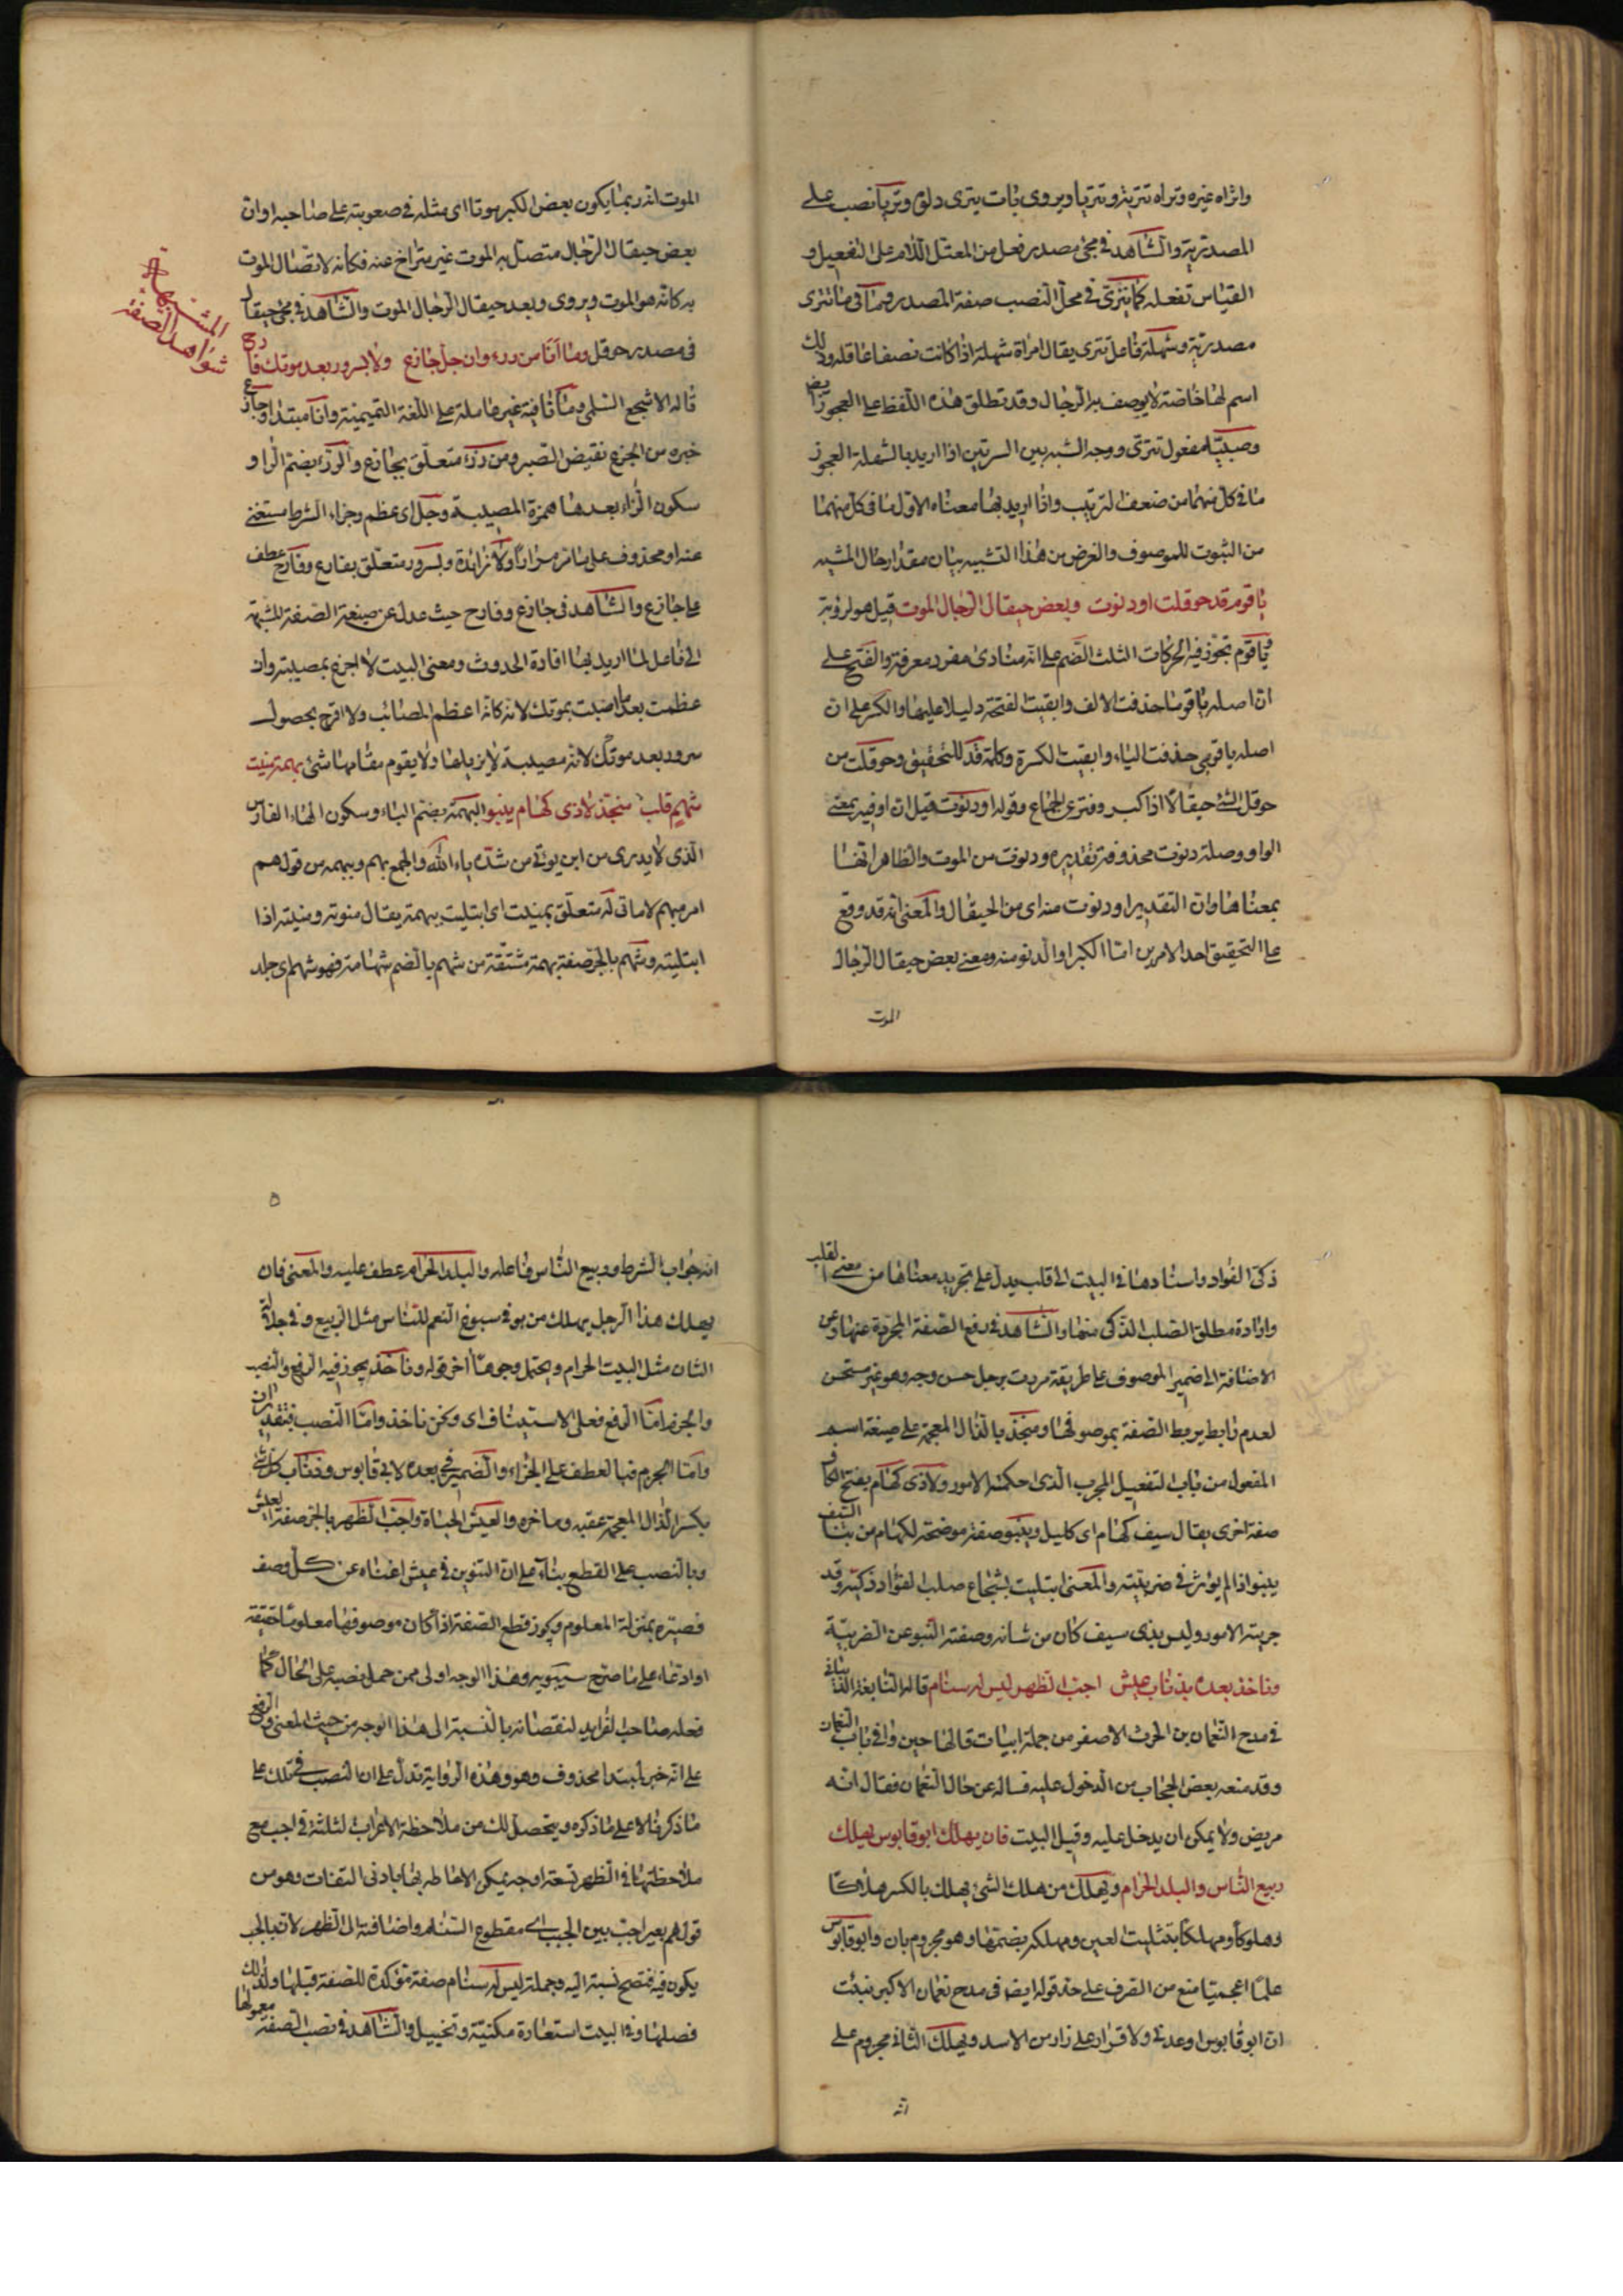 واثراه غيره وتراه تترية وتتريا ويروى باتت تنزى دلوه وتنزيا نصب على
المصدرية والشاهد فى مجئ مصدر فعل من المعتل اللام على التفعيل و
القياس تفعله كما تنزى فى محل النصب صفة المصدر وما فى ما تنزى
مصدرية وشهلة فاعل تنزى يقال امراة شهلة اذا كانت نصفا عاقلة وذلك
اسم لها خاصة لا يوصف به الرجال وقد تطلق هذه اللفظ على العجوز ايض
وصبيا مفعول تنزى ووجه الشبه بين السرتين اذا اريد بالشهلة العجوز
ما فى كل منهما من ضعف الترتيب واذا اريد بها معناه الاول ما فى كل منهما
من الثبوت للموصوف والغرض من هذا التشبيه بيان مقدار حال المشبه
يا قوم قد حوقلت او دنوت وبعض حيقال الرجال الموت قيل هو لرؤبة
يا قوم تجوز فيه الحركات الثلث الضم على انه منادى مفرد معرفة والفتح على
ان اصله يا قوما حذفت الالف وابقيت الفتحة دليلا عليها والكسر على ان
اصله يا قومى حذفت الياء وابقيت الكسرة وكلمة قد للتحقيق وحوقلت من
حوقل الشيخ حيقالا اذا كبر وفتر عن الجماع وقوله او دنوت قيل ان او فيه بمعنى
الواو وصلة دنوت محذوفة تقديره ودنوت من الموت والظاهر انها
بمعناها وان التقدير او دنوت منه اى من الحيقال والمعنى انه قد وقع
على التحقيق احد الامرين اما الكبر او الدنو منه ومعنى بعض حيقال الرجال
الموت
الموت انه ربما يكون بعض الكبر موتا اى مثله فى صعوبته على صاحبه او ان
بعض حيقال الرجال متصل به الموت غير متراخ عنه فكانه لاتصال الموت
به كانه هو الموت ويروى وبعد حيقال الرجال الموت والشاهد فى مجئ حيقال
فى مصدر حوقل وما انا من رزء وان جل جازع ولا بسرور بعد موتك فارح
شواهد الصفة
المشبهة
قاله الاشجع السلمى وما نافية غير عاملة على اللغة التميمية وانا مبتدا وجازع
خبره من الجزع نقيض الصبر ومن رزء متعلق بجازع والرزء بضم الراء و
سكون الزاء بعدها همزة المصيبة وجل اى عظم وجزاء الشرط مستغنى
عنه او محذوف على ما مر مرارا ولا زائدة وبسرور متعلق بفارح وفارح عطف
على جازع والشاهد فى جازع وفارح حيث عدل عن صيغة الصفة المشبهة
الى فاعل لما اريد بها افادة الحدوث ومعنى البيت لا اجزع بمصيبة وان
عظمت بعد ما اصبت بموتك لانه كانه اعظم المصائب ولا افرح بحصول
سرور بعد موتك لانه مصيبة لا يزيلها ولا يقوم مقامها شئ ببهمة منيت
شهم قلب منجذ لا ذى كهام ينبو البهمة بضم الباء وسكون الهاء الفارس
الذى لا يدرى من اين يؤتى من شدة باسه والجمع بهم وبهمه من قولهم
امر مبهم لا ماتى له متعلق بمنيت اى ابتليت ببهمة يقال منوته ومنيته اذا
ابتليته وشهم بالجر صفة بهمة مشتقة من شهم بالضم شهامة فهو شهم اى جلد
ذكى الفؤاد واسنادها فى البيت الى قلب يدل على تجريد معناها من معنى القلب
وارادة مطلق الصلب الذكى منها والشاهد فى رفع الصفة المجردة عنها وعن
الاضافة الى ضمير الموصوف على طريقة مررت برجل حسن وجه وهو غير مستحسن
لعدم رابط يربط الصفة بموصوفها ومنجذ بالذال المعجمة على صيغة اسم
المفعول من باب التفعيل المجرب الذى احكمته الامور ولا ذى كهام بفتح الكاف
صفة اخرى يقال سيف كهام اى كليل وينبو صفة موضحة لكهام من نبا السيف
ينبو اذا لم يؤثر فى ضريبته والمعنى ابتليت بشجاع صلب الفؤاد ذكيه وقد
جربته الامور وليس بذى سيف كان من شانه وصفته النبو عن الضريبة
وناخذ بعده بذناب عيش اجب الظهر ليس له سنام قاله النابغة الذبيانى
فى مدح النعمان بن الحرث الاصفر من جملة ابيات قالها حين وافى باب النعمان
وقد منعه بعض الحجاب من الدخول عليه فساله عن حال النعمان فقال انه
مريض ولا يمكن ان يدخل عليه وقبل البيت فان يهلك ابو قابوس يهلك
ربيع الناس والبلد الحرام ويهلك من هلك الشئ يهلك بالكسر هلاكا
وهلوكا ومهلكا بتثليث العين ومهلكه بضمها وهو مجزوم بان وابو قابوس
علما اعجميا منع من الصرف على حد قوله ايض فى مدح نعمان الاكبر نبئت
ان ابو قابوس اوعدنى ولا قرار على زار من الاسد ويهلك الثانى مجزوم على
انه
٥
انه جواب الشرط وربيع الناس فاعله والبلد الحرام عطف عليه والمعنى فان
يهلك هذا الرجل يهلك من هو فى سبوغ النعم للناس مثل الربيع وفى جلالة
الشان مثل البيت الحرام ويحتمل وجوها اخر قوله وناخذ يجوز فيه الرفع والنصب
والجزم اما الرفع فعلى الاستيناف اى ونحن ناخذ واما النصب فبتقدير ان
واما الجزم فبالعطف على الجزاء والضمير فى بعده لابى قابوس وذناب كل شئ
بكسر الذال المعجمة عقبه وماخره والعيش الحياة واجب الظهر بالجر صفة لعيش
وبالنصب على القطع بناء على ان التنوين فى عيش اغناه عن كل وصف
فصيره بمنزلة المعلوم ويجوز قطع الصفة اذا كان موصوفها معلوما حقيقة
او ادعاء على ما صرح سيبويه وهذا الوجه اولى ممن حمل نصبه على الحال كما
فعله صاحب الفرايد لنقصانه بالنسبة الى هذا الوجه من حيث المعنى والرفع
على انه خبر لمبتدا محذوف وهو وهذه الرواية تدل على ان النصب فى تلك على
ما ذكرنا لا على ما ذكره ويتحصل لك من ملاحظة الاعراب الثلثة فى اجب مع
ملاحظتها فى الظهر تسعة اوجه يمكن الاحاطة بها بادنى التفات وهو من
قولهم بعير اجب بين الجبب اى مقطوع السنام واضافته الى الظهر لان الجب
يكون فيه فتصح نسبته اليه وجملة ليس له سنام صفة مؤكدة للصفة قبلها ولذلك
فصلها وفى البيت استعارة مكنية وتخييل والشاهد فى نصب الصفة معمولها